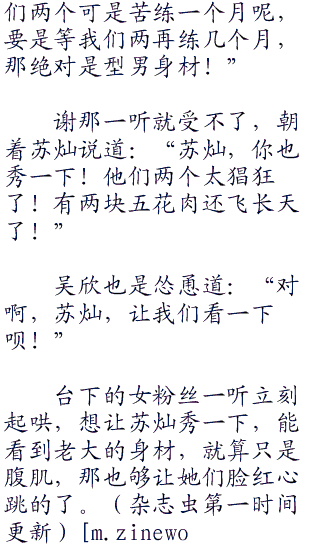 们两个可是苦练一个月呢，
要是等我们两再练几个月，
那绝对是型男身材！”
谢那一听就受不了，朝
着苏灿说道：“苏灿，你也
秀一下！他们两个太猖狂
了！有两块五花肉还飞长天
了！”
吴欣也是怂恿道：“对
啊，苏灿，让我们看一下
呗！”
台下的女粉丝一听立刻
起哄，想让苏灿秀一下，能
看到老大的身材，就算只是
腹肌，那也够让她们脸红心
跳的了。（杂志虫第一时间
更新）[m.zinewo